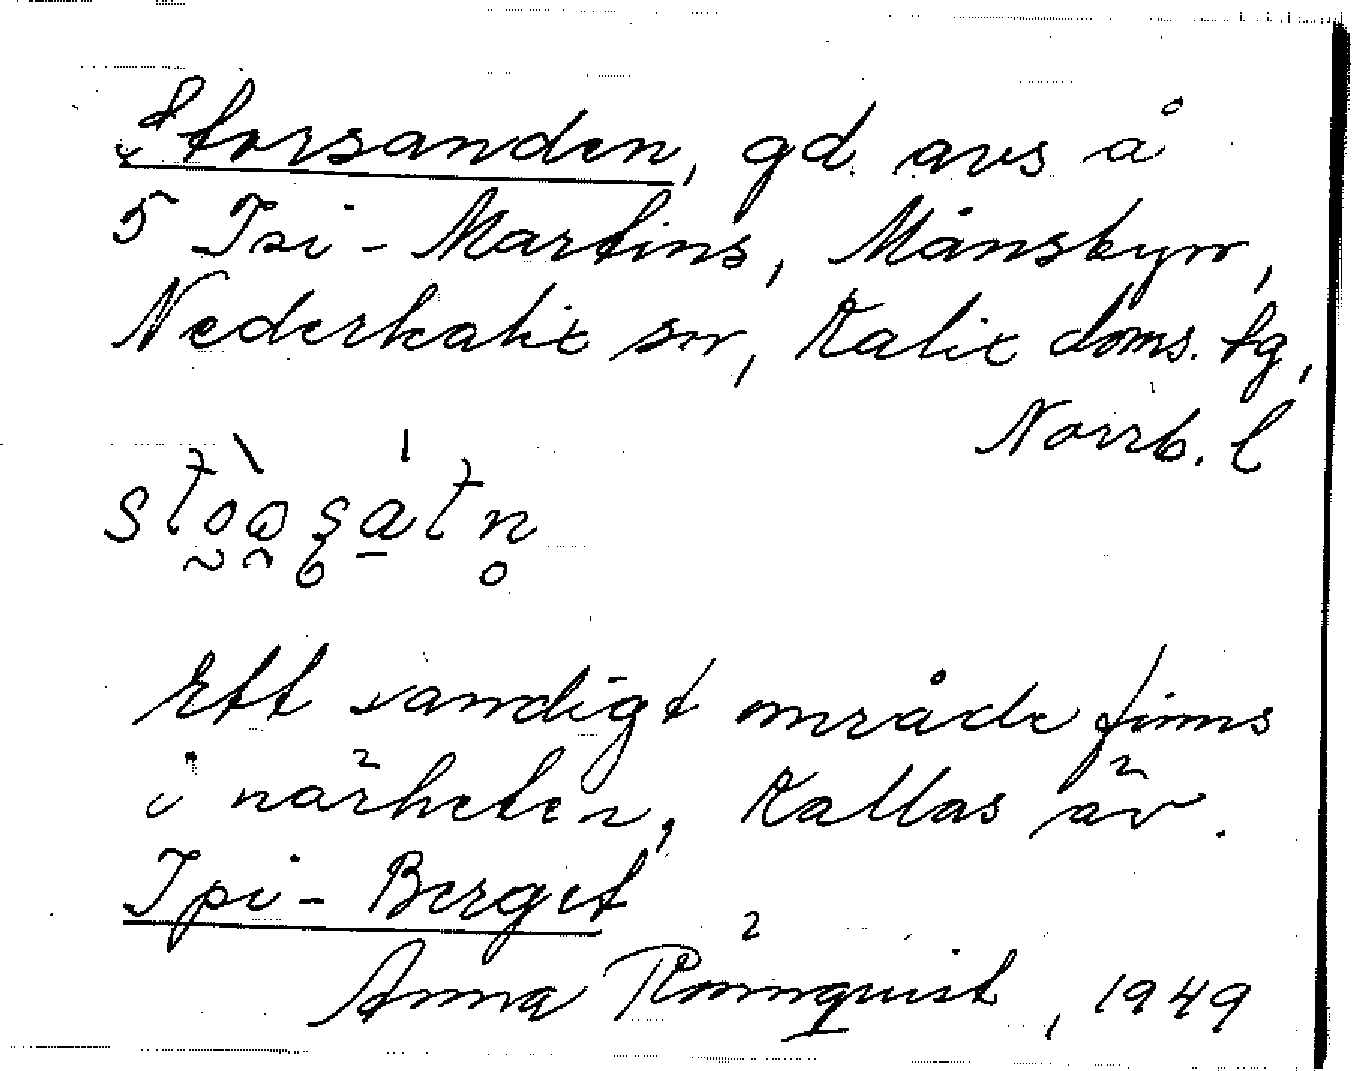 Storsanden, gd. avs å
5 Isi-Martins, Månsbyn,
Nederkalix sn, Kalix doms. tg,
Norrb. l
Ett sandigt område finns
i närheten, Kallas äv.
Ipi-Berget
Anna Rönnquist, 1949